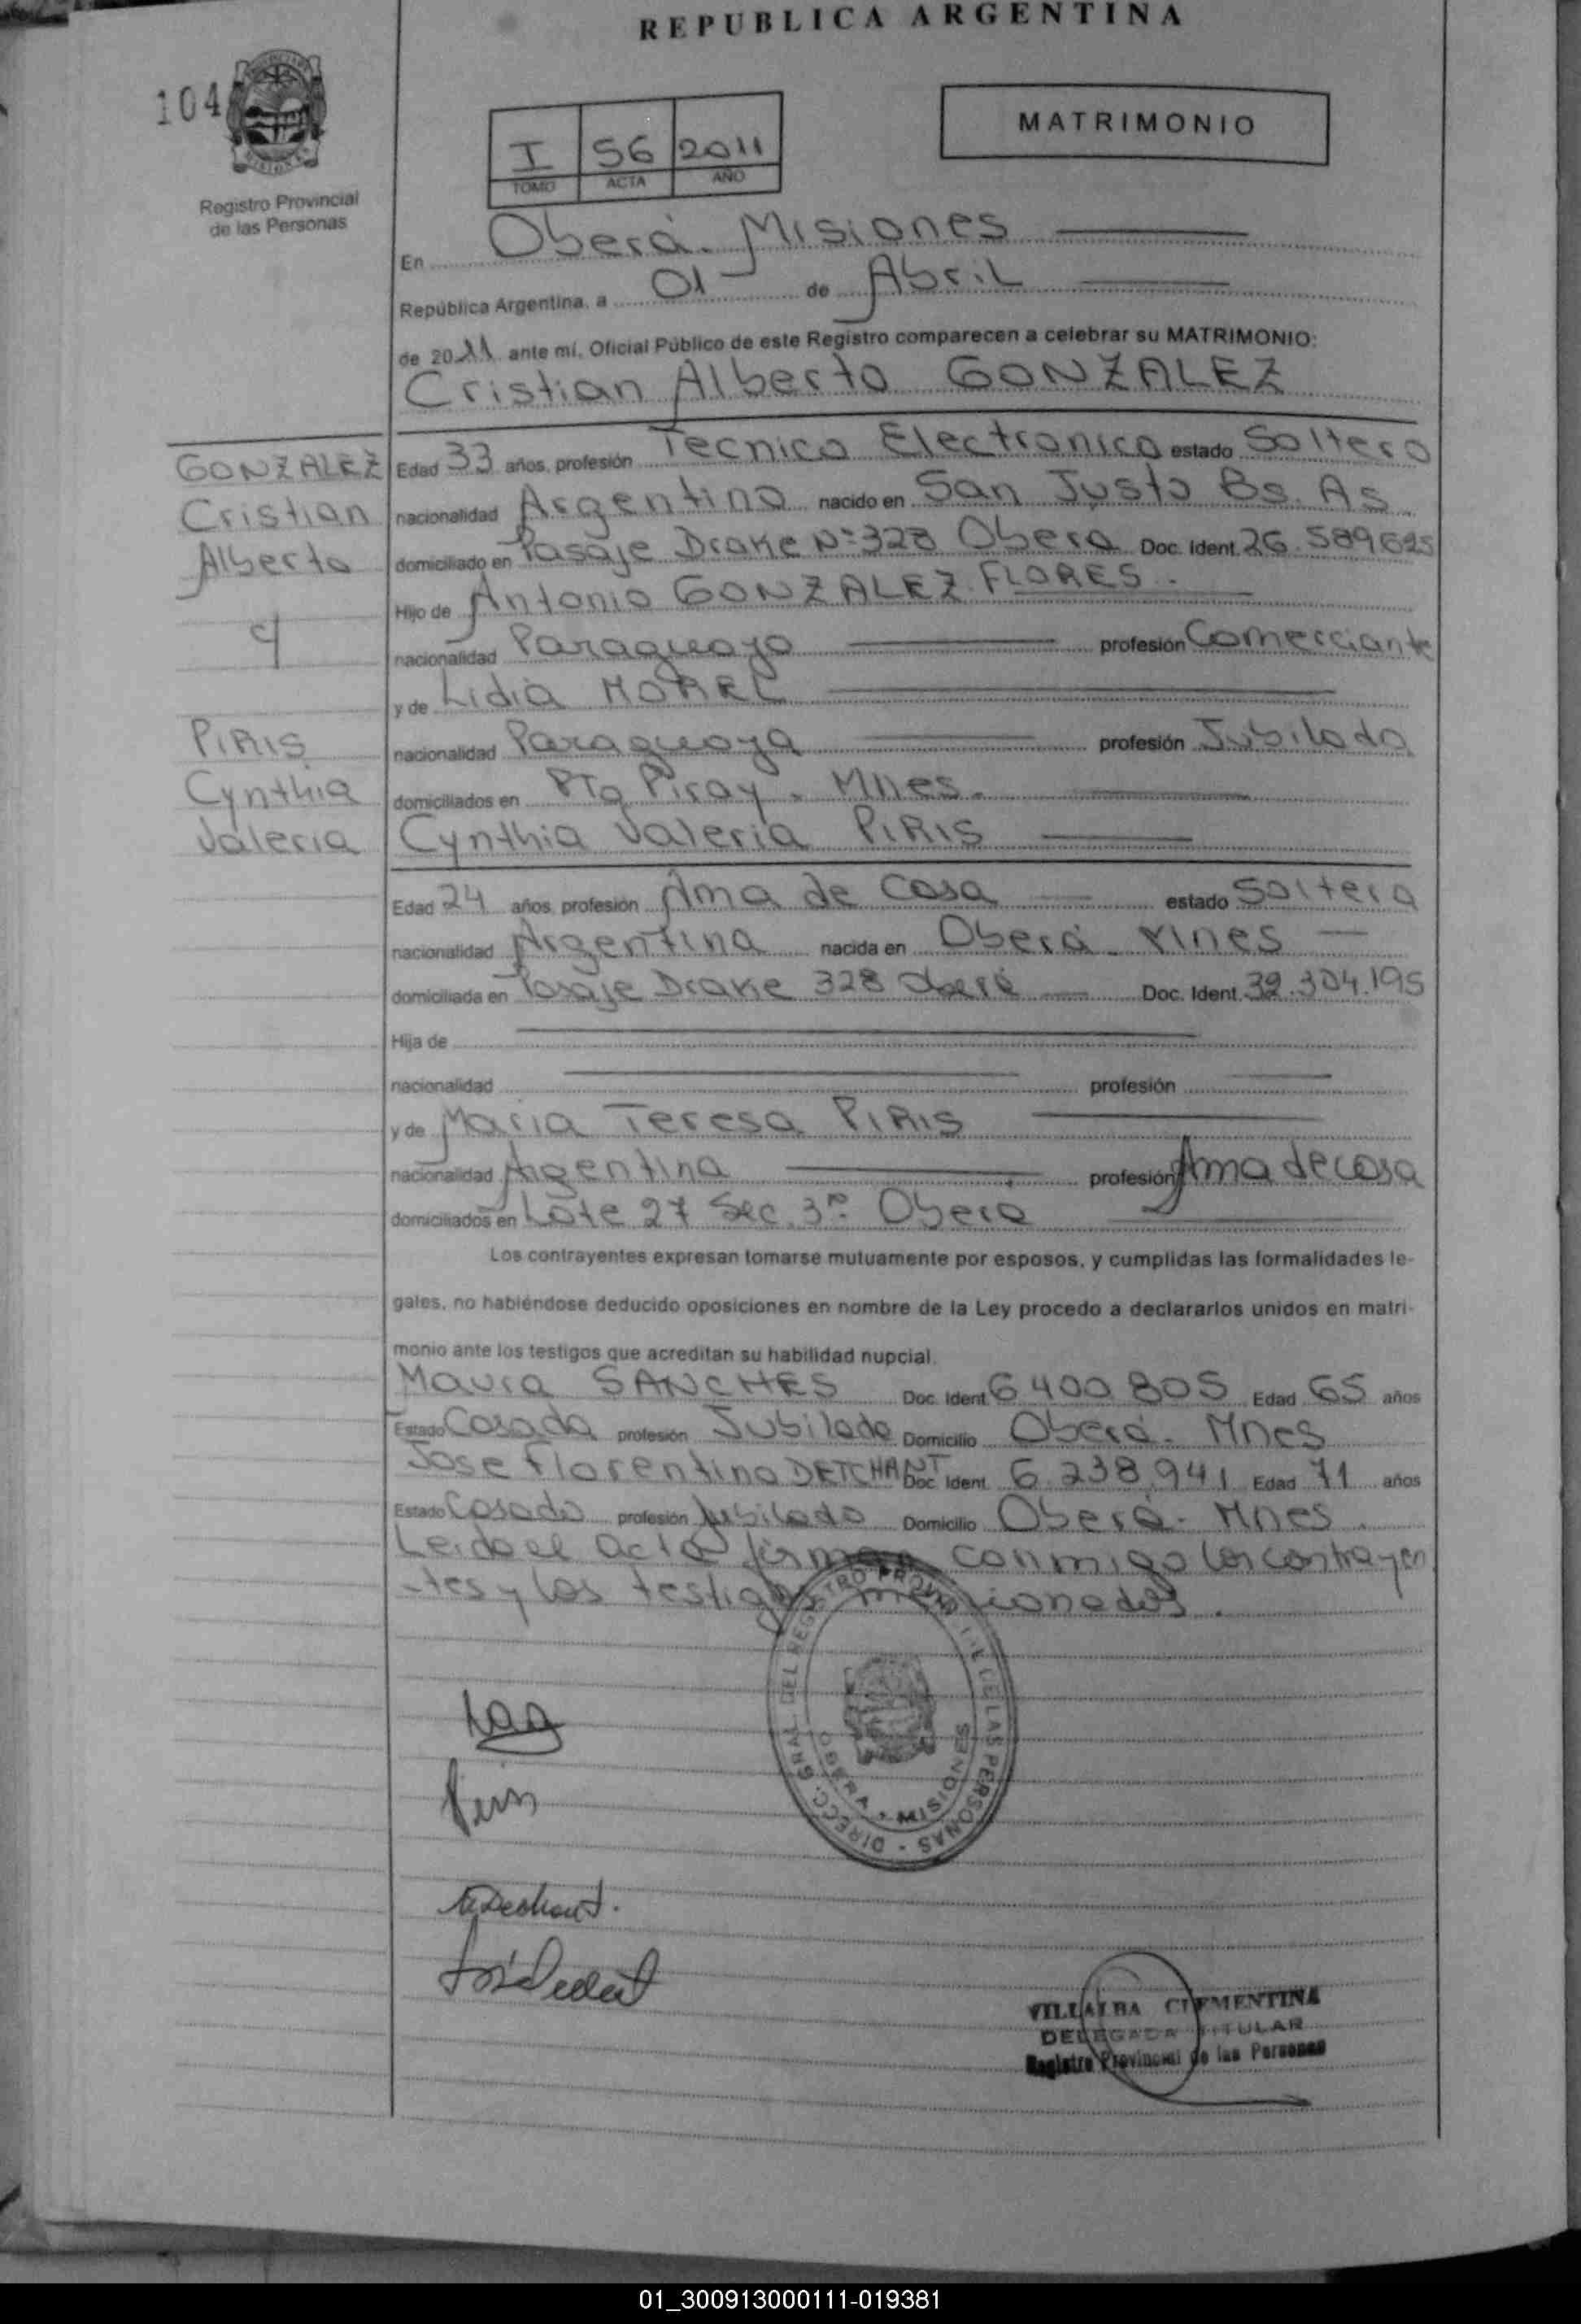 REPUBLICA ARGENTINA
104
MATRIMONIO
I 56 2011
TOMO ACTA AÑO
Registro Provincial
de las Personas
En Oberá - Misiones
República Argentina, a 01 de Abril
de 2011 ante mí, Oficial Público de este Registro comparecen a celebrar su MATRIMONIO:
Cristian Alberto GONZALEZ
GONZALEZ
Cristian
Alberto
c/
PIRIS
Cynthia
Valeria
Edad 33 años, profesión Tecnico Electronico estado Soltero
nacionalidad Argentino nacido en San Justo Bs. As.
domiciliado en Pasaje Drake Nº 328 Obera Doc. Ident. 26.589625
Hijo de Antonio GONZALEZ FLORES.
nacionalidad Paraguayo profesión Comerciante
y de Lidia MOREL
nacionalidad Paraguaya profesión Jubilada
domiciliados en Pto Piray - Mnes.
Cynthia Valeria PIRIS
Edad 24 años, profesión Ama de Casa estado Soltera
nacionalidad Argentina nacida en Oberá - Mnes
domiciliada en Pasaje Drake 328 Oberá Doc. Ident. 32.304.195
Hija de
nacionalidad profesión
y de Maria Teresa PIRIS
nacionalidad Argentina profesión Ama de casa
domiciliados en Lote 27 Sec. 3ª Oberá
Los contrayentes expresan tomarse mutuamente por esposos, y cumplidas las formalidades le-
gales, no habiéndose deducido oposiciones en nombre de la Ley procedo a declararlos unidos en matri-
monio ante los testigos que acreditan su habilidad nupcial.
Maura SANCHES Doc. Ident. 6.400.805 Edad 65 años
Estado Casada profesión Jubilada Domicilio Oberá - Mnes
Jose Florentino DETCHANT Doc. Ident. 6.238.941 Edad 71 años
Estado Casado profesión Jubilado Domicilio Oberá - Mnes.
Leido el acta firman conmigo los contrayen
-tes y los testigos mencionados.
DIRECC. GRAL. DEL REGISTRO PROVINCIAL DE LAS PERSONAS
OBERA - MISIONES
Piris
VILLALBA CLEMENTINA
DELEGADA TITULAR
Registro Provincial de las Personas
01_300913000111-019381